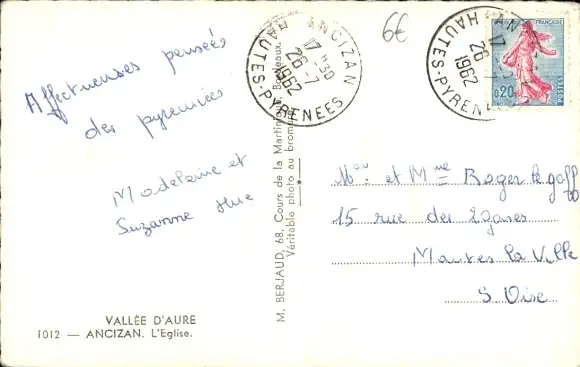 Affectueuses pensées
des pyrennées
Madeleine et
Suzanne Hue
VALLÉE D'AURE
1012 — ANCIZAN. L'Eglise.
M. BERJAUD, 68, Cours de la Martinique, Bordeaux.
Véritable photo au bromure
ANCIZAN
17 H30
26-7
1962
HAUTES-PYRENEES
6€
ANCIZAN
17
26-7
1962
HAUTES-PYRENEES
FRANÇAISE
0,20
POSTES
Mr. et Mme Roger Legoff
15 rue des Égares
Mantes la Ville
S Oise